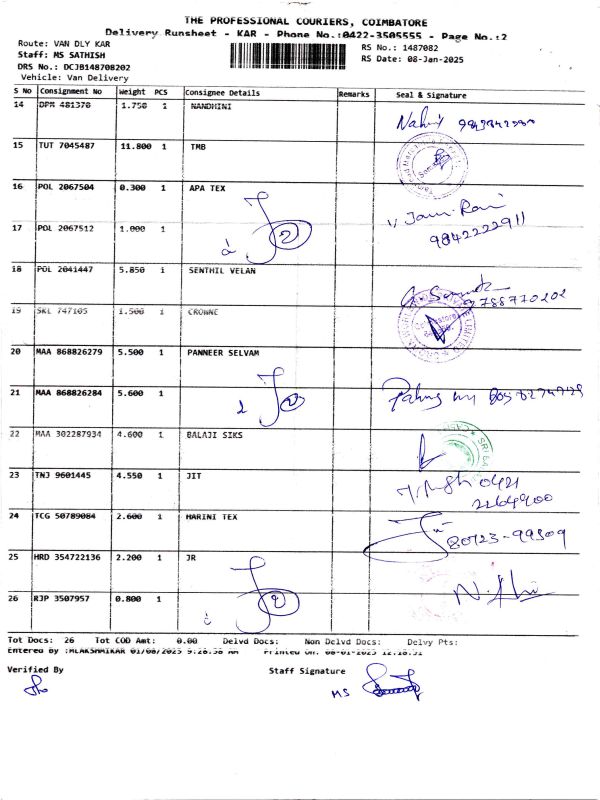 THE PROFESSIONAL COURIERS, COIMBATORE
Delivery Runsheet - KAR - Phone No.:0422-3505555 - Page No.:2
Route: VAN DLY KAR
Staff: MS SATHISH
RS No.: 1487082
DRS No.: DCJB148708202
RS Date: 08-Jan-2025
Vehicle: Van Delivery
S No Consignment No Weight PCS Consignee Details Remarks Seal & Signature
14 DPM 481370 1.750 1 NANDHINI
15 TUT 7045487 11.800 1 TMB
16 POL 2067504 0.300 1 APA TEX
17 POL 2067512 1.000 1
2
V Jam Rani
9842222911
18 POL 2041447 5.850 1 SENTHIL VELAN
9788770202
19 SKL 747105 1.500 1 CROWNE
20 MAA 868826279 5.500 1 PANNEER SELVAM
21 MAA 868826284 5.600 1
2 2
22 MAA 302287934 4.600 1 BALAJI SIKS
23 TNJ 9601445 4.550 1 JIT
0421
2264900
24 TCG 50789084 2.600 1 HARINI TEX
80123-99509
25 HRD 354722136 2.200 1 JR
26 RJP 3507957 0.800 1
2
Tot Docs: 26 Tot COD Amt: 0.00 Delvd Docs: Non Delvd Docs: Delvy Pts:
Entered By :MLAKSHMIKAR 01/08/2025 9:28:58 AM Printed On: 08-01-2025 12:18:51
Verified By
Staff Signature
MS